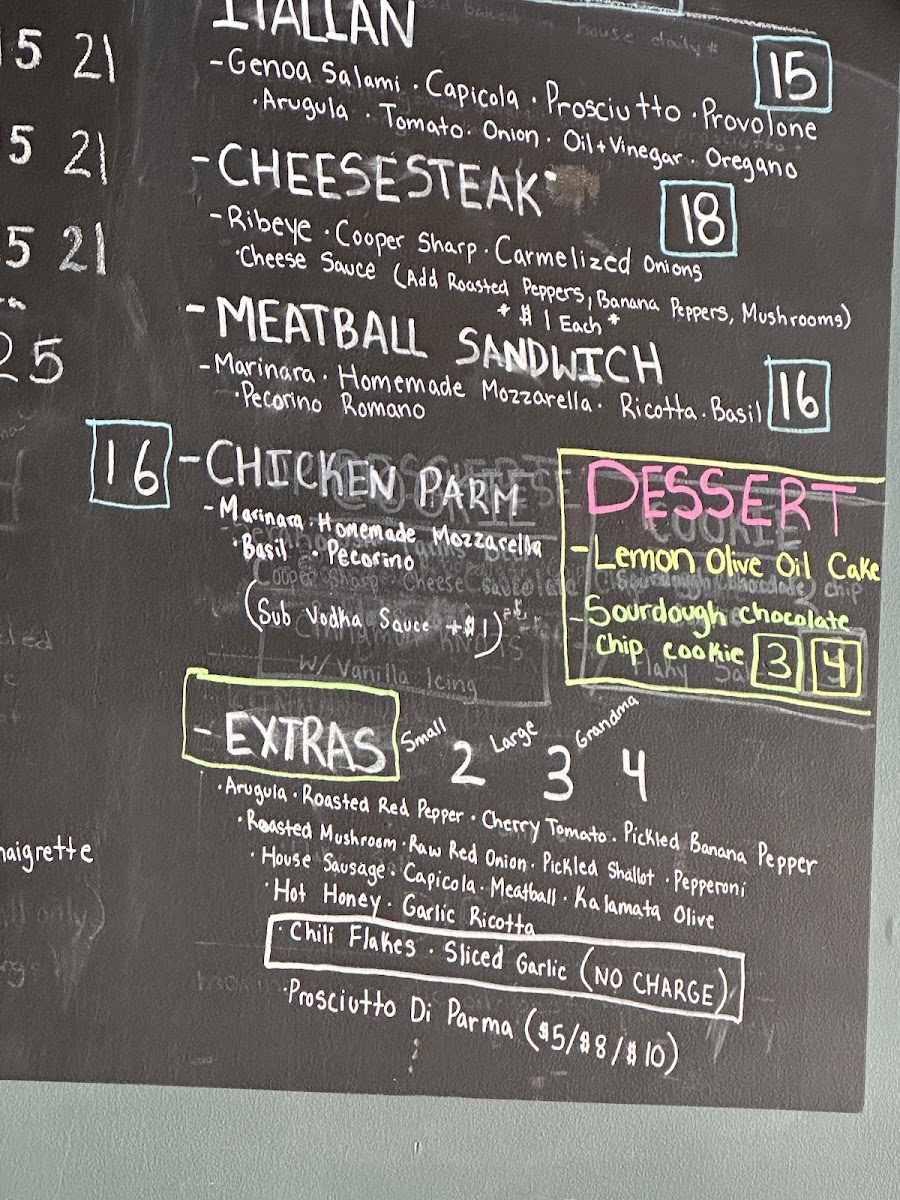 ITALIAN
15
-Genoa Salami · Capicola · Prosciutto · Provolone
· Arugula · Tomato · Onion · Oil+Vinegar · Oregano
-CHEESESTEAK
18
-Ribeye · Cooper Sharp · Carmelized Onions
· Cheese Sauce (Add Roasted Peppers, Banana Peppers, Mushrooms)
* $1 Each *
-MEATBALL SANDWICH
16
-Marinara · Homemade Mozzarella · Ricotta · Basil
· Pecorino Romano
16 -CHICKEN PARM
-Marinara · Homemade Mozzarella
· Basil · Pecorino
(Sub Vodka Sauce +$1)
w/ Vanilla Icing
DESSERT
-Lemon Olive Oil Cake
-Sourdough chocolate
chip cookie 3 4
-EXTRAS
Small 2 Large 3 Grandma 4
· Arugula · Roasted Red Pepper · Cherry Tomato · Pickled Banana Pepper
· Roasted Mushroom · Raw Red Onion · Pickled Shallot · Pepperoni
· House Sausage · Capicola · Meatball · Kalamata Olive
· Hot Honey · Garlic Ricotta
· Chili Flakes · Sliced Garlic (NO CHARGE)
· Prosciutto Di Parma ($5/$8/$10)
15 21
5 21
5 21
25
naigrette